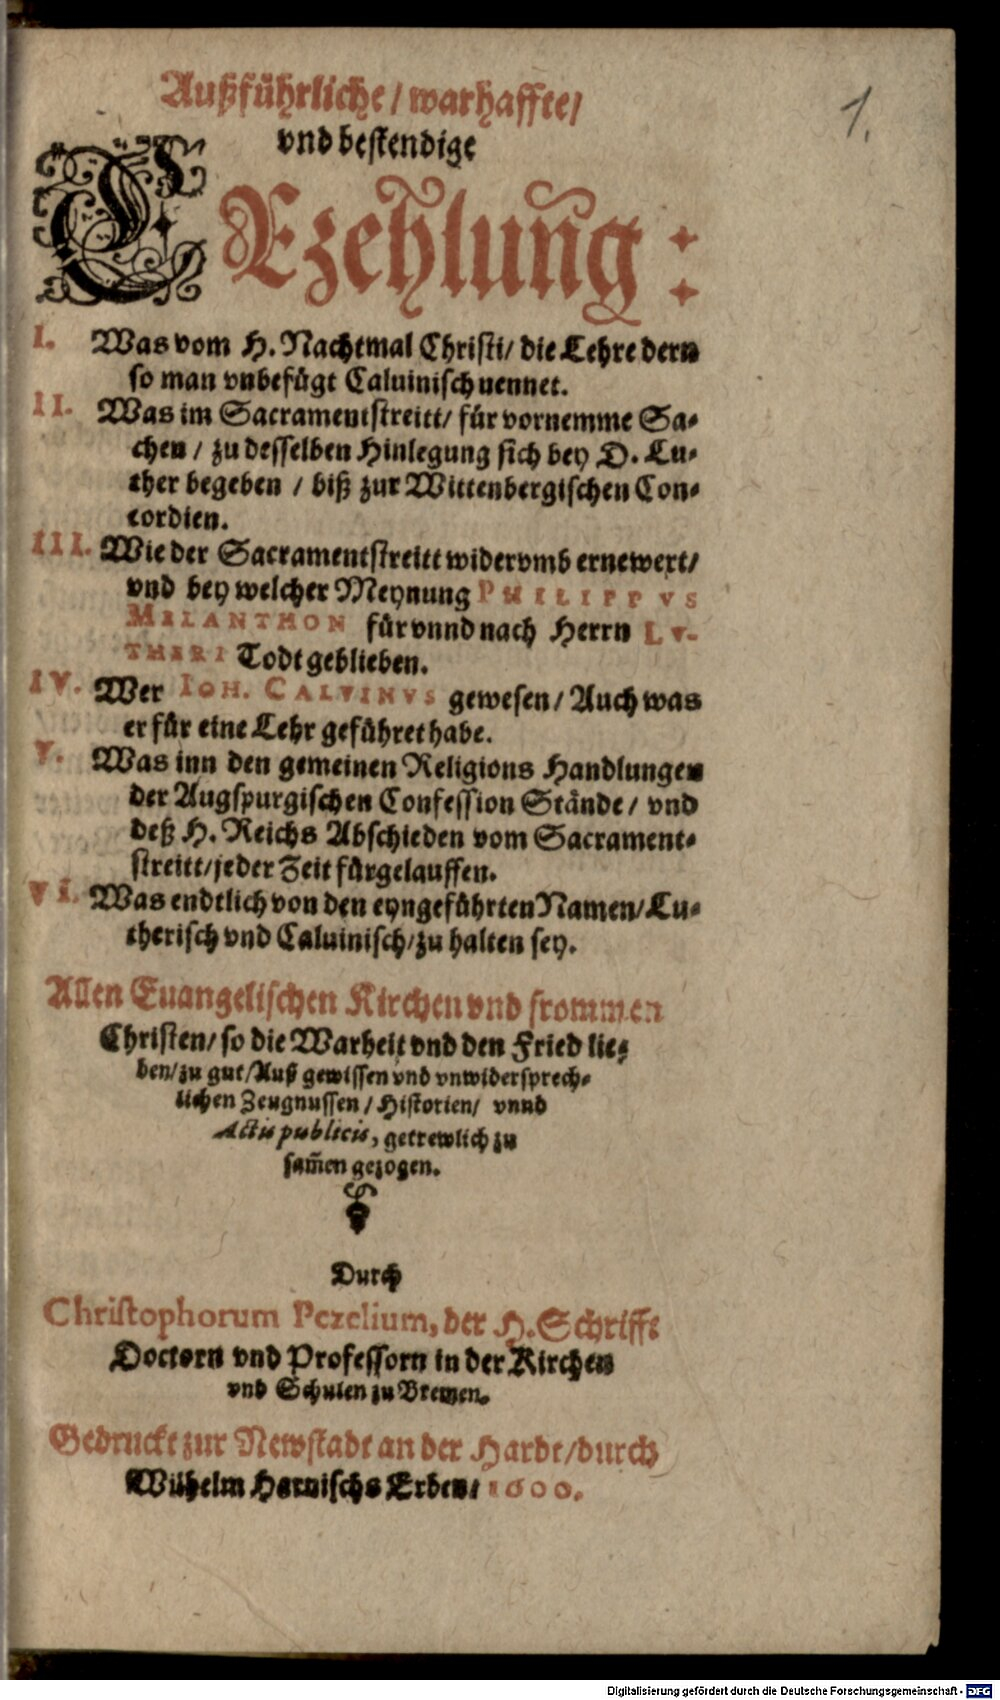 Außführliche / warhaffte /
1.
vnd bestendige
Erzehlung :
I. Was vom H. Nachtmal Christi / die Lehre dern
so man vnbefügt Caluinisch nennet.
II. Was im Sacramentstreitt / für vornemme Sa-
chen / zu desselben Hinlegung sich bey D. Lu-
ther begeben / biß zur Wittenbergischen Con-
cordien.
III. Wie der Sacramentstreitt widervmb ernewert /
vnd bey welcher Meynung PHILIPPVS
MELANTHON für vnnd nach Herrn LV-
THERI Todt geblieben.
IV. Wer IOH. CALVINVS gewesen / Auch was
er für eine Lehr geführet habe.
V. Was inn den gemeinen Religions Handlungen
der Augspurgischen Confession Stände / vnd
deß H. Reichs Abschieden vom Sacrament-
streitt / jeder Zeit fürgelauffen.
VI. Was endtlich von den eyngeführten Namen / Lu-
therisch vnd Caluinisch / zu halten sey.
Allen Euangelischen Kirchen vnd frommen
Christen / so die Warheit vnd den Fried lie-
ben / zu gut / Auß gewissen vnd vnwidersprech-
lichen Zeugnussen / Historien / vnnd
Actis publicis, getrewlich zu
sam̃en gezogen.
Durch
Christophorum Pezelium, der H. Schrifft
Doctorn vnd Professorn in der Kirchen
vnd Schulen zu Bremen.
Gedruckt zur Newstadt an der Hardt / durch
Wilhelm Harnischs Erben / 1600.
Digitalisierung gefördert durch die Deutsche Forschungsgemeinschaft - DFG